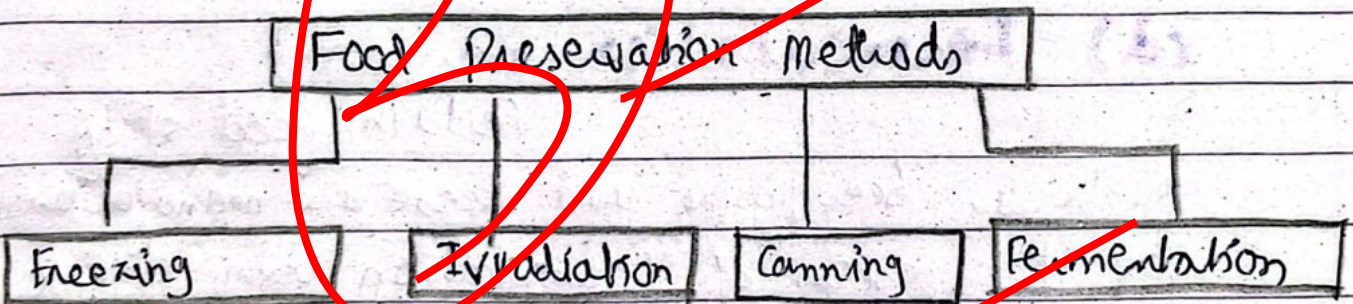 Food Preservation Methods
Freezing Irradiation Canning Fermentation